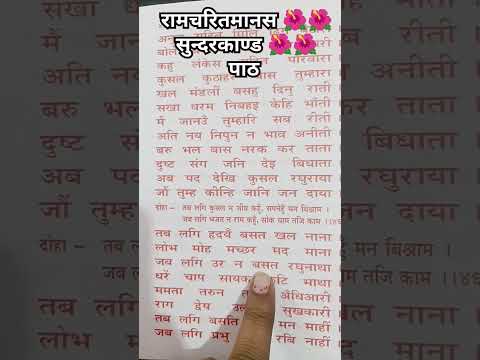 रामचरितमानस
सुन्दरकाण्ड
पाठ
कहु लंकेस परिवारा
कुसल कुठाहर बास तुम्हारा
खल मंडलीं बसहु दिनु राती
सखा धरम निबहइ केहि भाँती
मैं जानउँ तुम्हारि सब रीती
अति नय निपुन न भाव अनीती
बरु भल बास नरक कर ताता
दुष्ट संग जनि देइ बिधाता
अब पद देखि कुसल रघुराया
जौं तुम्ह कीन्हि जानि जन दाया
दोहा – तब लगि कुसल न जीव कहुँ, सपनेहुँ मन बिश्राम ।
जब लगि भजत न राम कहुँ, सोक धाम तजि काम ।।४६
तब लगि हृदयँ बसत खल नाना
लोभ मोह मच्छर मद माना
जब लगि उर न बसत रघुनाथा
धरें चाप सायक कटि भाथा
ममता तरुन अँधिआरी
राग द्वेष सुखकारी
तब लगि बसति मन माहीं
जब लगि प्रभु रबि नाहीं